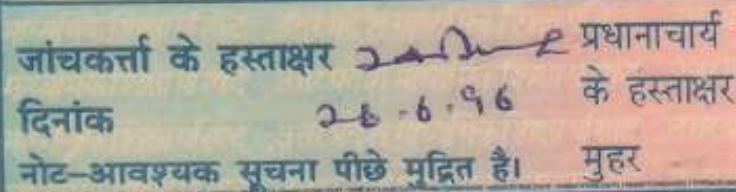 जांचकर्त्ता के हस्ताक्षर
प्रधानाचार्य
के हस्ताक्षर
दिनांक
नोट-आवश्यक सूचना पीछे मुद्रित है।
मुहर